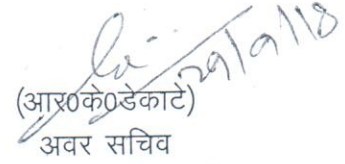 29/9/18
(आर0के0डेकाटे)
अवर सचिव